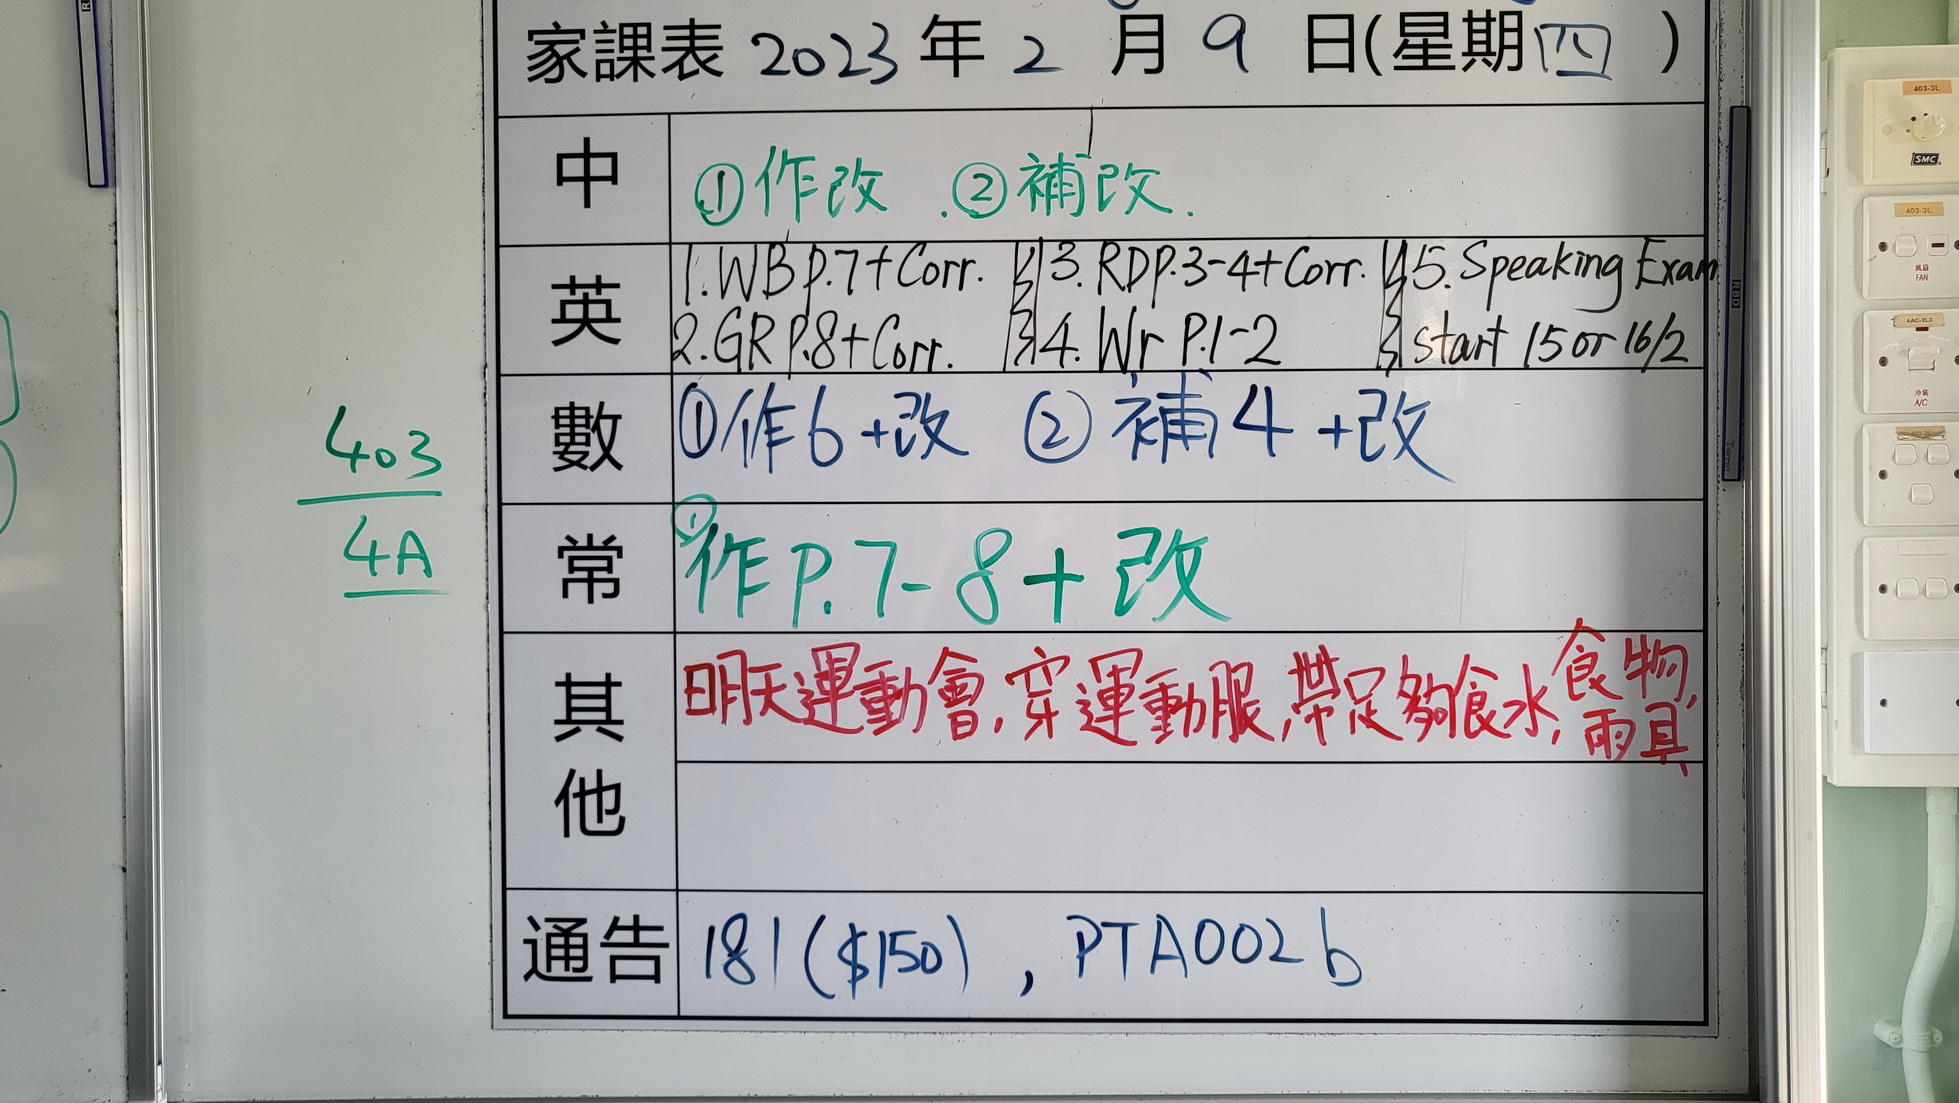 家課表 2023 年 2 月 9 日(星期四 )
中
①作改 . ②補改.
英
1. WB p.7+Corr. 3. RD P.3-4+Corr. 5. Speaking Exam
2. GR P.8+Corr. 4. Wr P.1-2 start 15 or 16/2
數
①作6+改 ②補4+改
403
4A
常
①作P.7-8+改
其他
明天運動會,穿運動服,帶足夠食水,食物,
雨具
通告
181($150) , PTA002b
403-3L
SMC
403-3L
風扇
FAN
冷氣
A/C